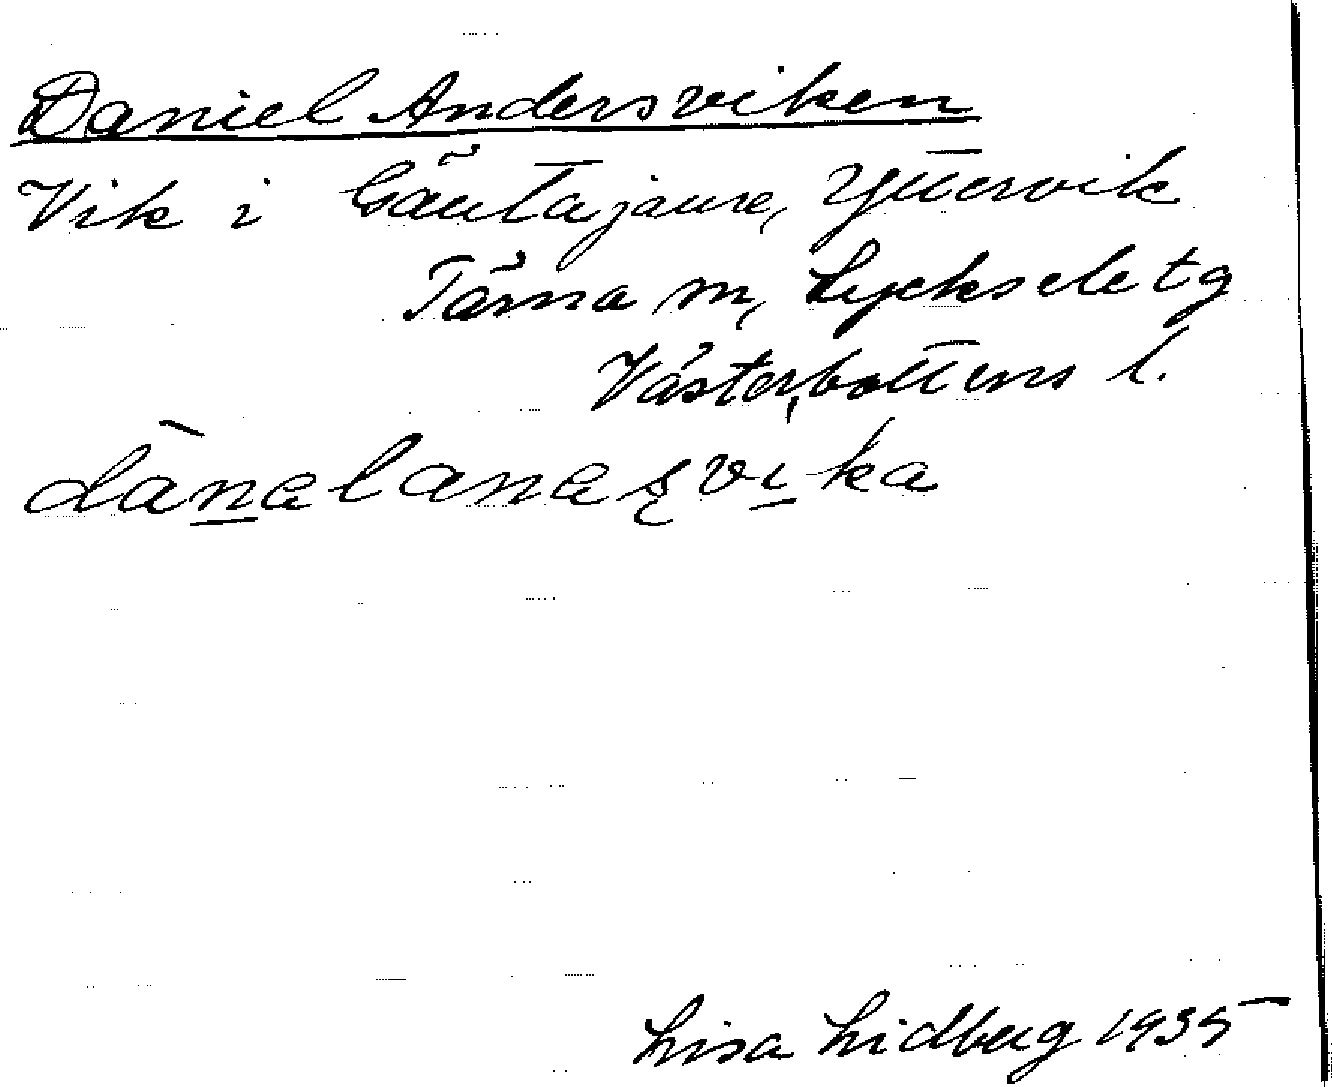 Daniel Andersviken
Vik i Gäutajaure, Yttervik
Tärna sn, Lycksele tg
Västerbottens l.
Lisa Lidberg 1935